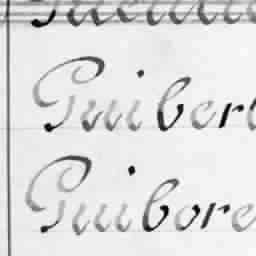 Guiber
Guibore